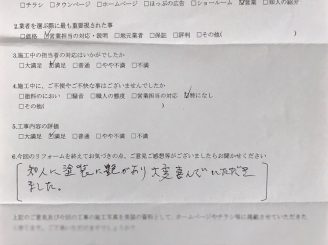 □チラシ □タウンページ □ホームページ □ほっぷの広告 □ショールーム ☑営業 □知人の紹介
2.業者を選ぶ際に最も重要視された事
□価格 ☑営業担当の対応・説明 □地元業者 □保証 □評判 □その他(
3.施工中の担当者の対応はいかがでしたか
□大満足 ☑満足 □普通 □やや不満 □不満
4.施工中に、ご不便やご不快な事はございませんでしたか
□塗料のにおい □騒音 □職人の態度 □営業担当の対応 ☑特になし
□その他(
5.工事内容の評価
□大満足 ☑満足 □普通 □やや不満 □不満
6.今回のリフォームを終えてお気づきの点、ご意見ご感想等がございましたらお聞かせください
知人に塗装に艶があり大変喜んでいただき
ました。
上記のご意見及び今回の施工写真を弊社の資料として、ホームページやチラシ等に掲載させていただき